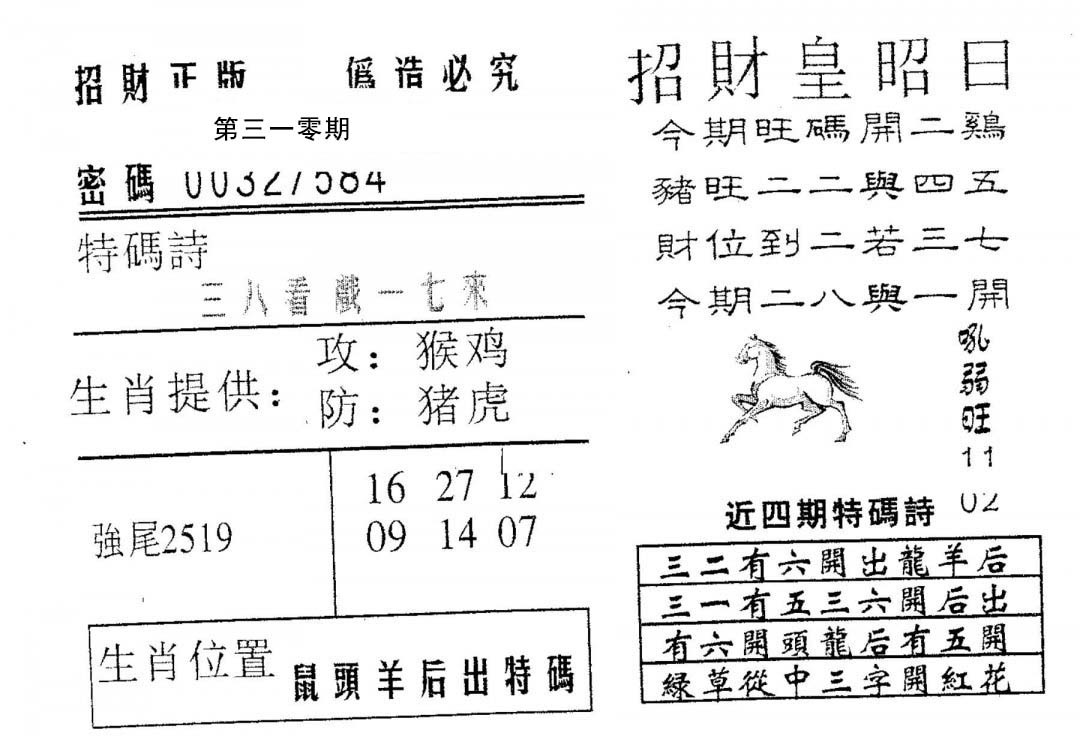 招財正版 僞造必究
第三一零期
密碼 00327584
特碼詩
三八看戲一七來
生肖提供：
攻：猴鸡
防：猪虎
強尾2519
16 27 12
09 14 07
生肖位置 鼠頭羊后出特碼
招財皇昭日
今期旺碼開二鷄
豬旺二二與四五
財位到二若三七
今期二八與一開
吼
弱
旺
11
02
近四期特碼詩
三二有六開出龍羊后
三一有五三六開后出
有六開頭龍后有五開
緑草從中三字開紅花